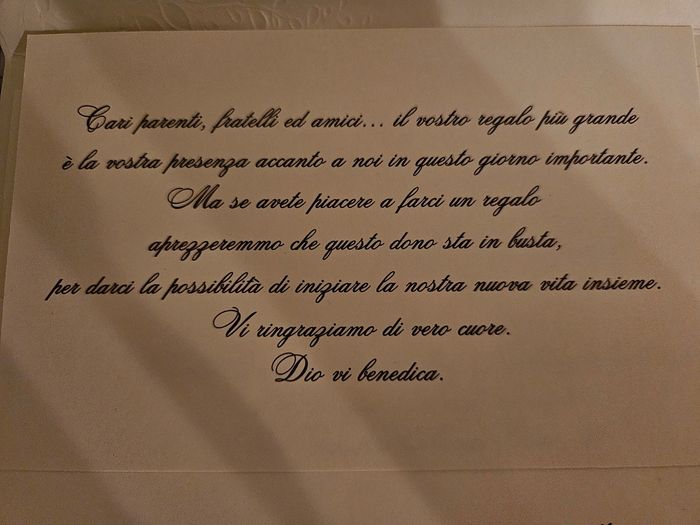 Cari parenti, fratelli ed amici... il vostro regalo più grande
è la vostra presenza accanto a noi in questo giorno importante.
Ma se avete piacere a farci un regalo
aprezzeremmo che questo dono sta in busta,
per darci la possibilità di iniziare la nostra nuova vita insieme.
Vi ringraziamo di vero cuore.
Dio vi benedica.